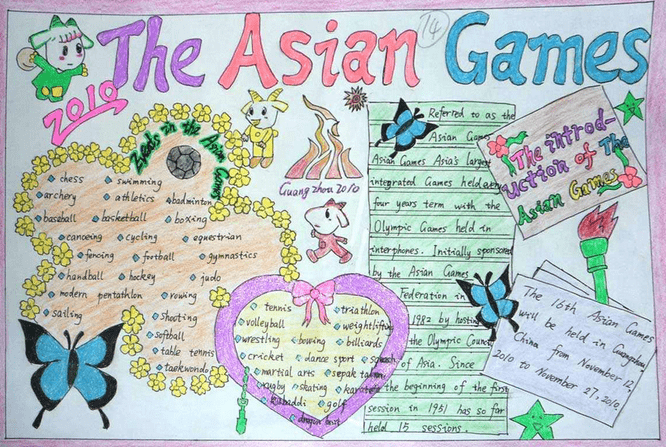 The Asian Games
14
2010
in the Asian Games
chess swimming
archery athletics badminton
baseball basketball boxing
canoeing cycling equestrian
fencing football gymnastics
handball hockey judo
modern pentathlon rowing
sailing shooting
softball
table tennis
taekwondo
Guangzhou 2010
tennis triathlon
volleyball weightlifting
wrestling bowing billiards
cricket dance sport squash
martial arts sepak takraw
rugby skating karate
kabaddi golf
dragon boat
Referred to as the
Asian Games
Asian Games Asia's largest
integrated Games held every
four years term with the
Olympic Games held in
interphones. Initially sponsored
by the Asian Games
Federation in
1982 by hosting
the Olympic Council
of Asia. Since
the beginning of the first
session in 1951 has so far
held 15 sessions.
The introd-
uction of The
Asian Games
The 16th Asian Games
will be held in Guangzhou
China from November 12,
2010 to November 27, 2010